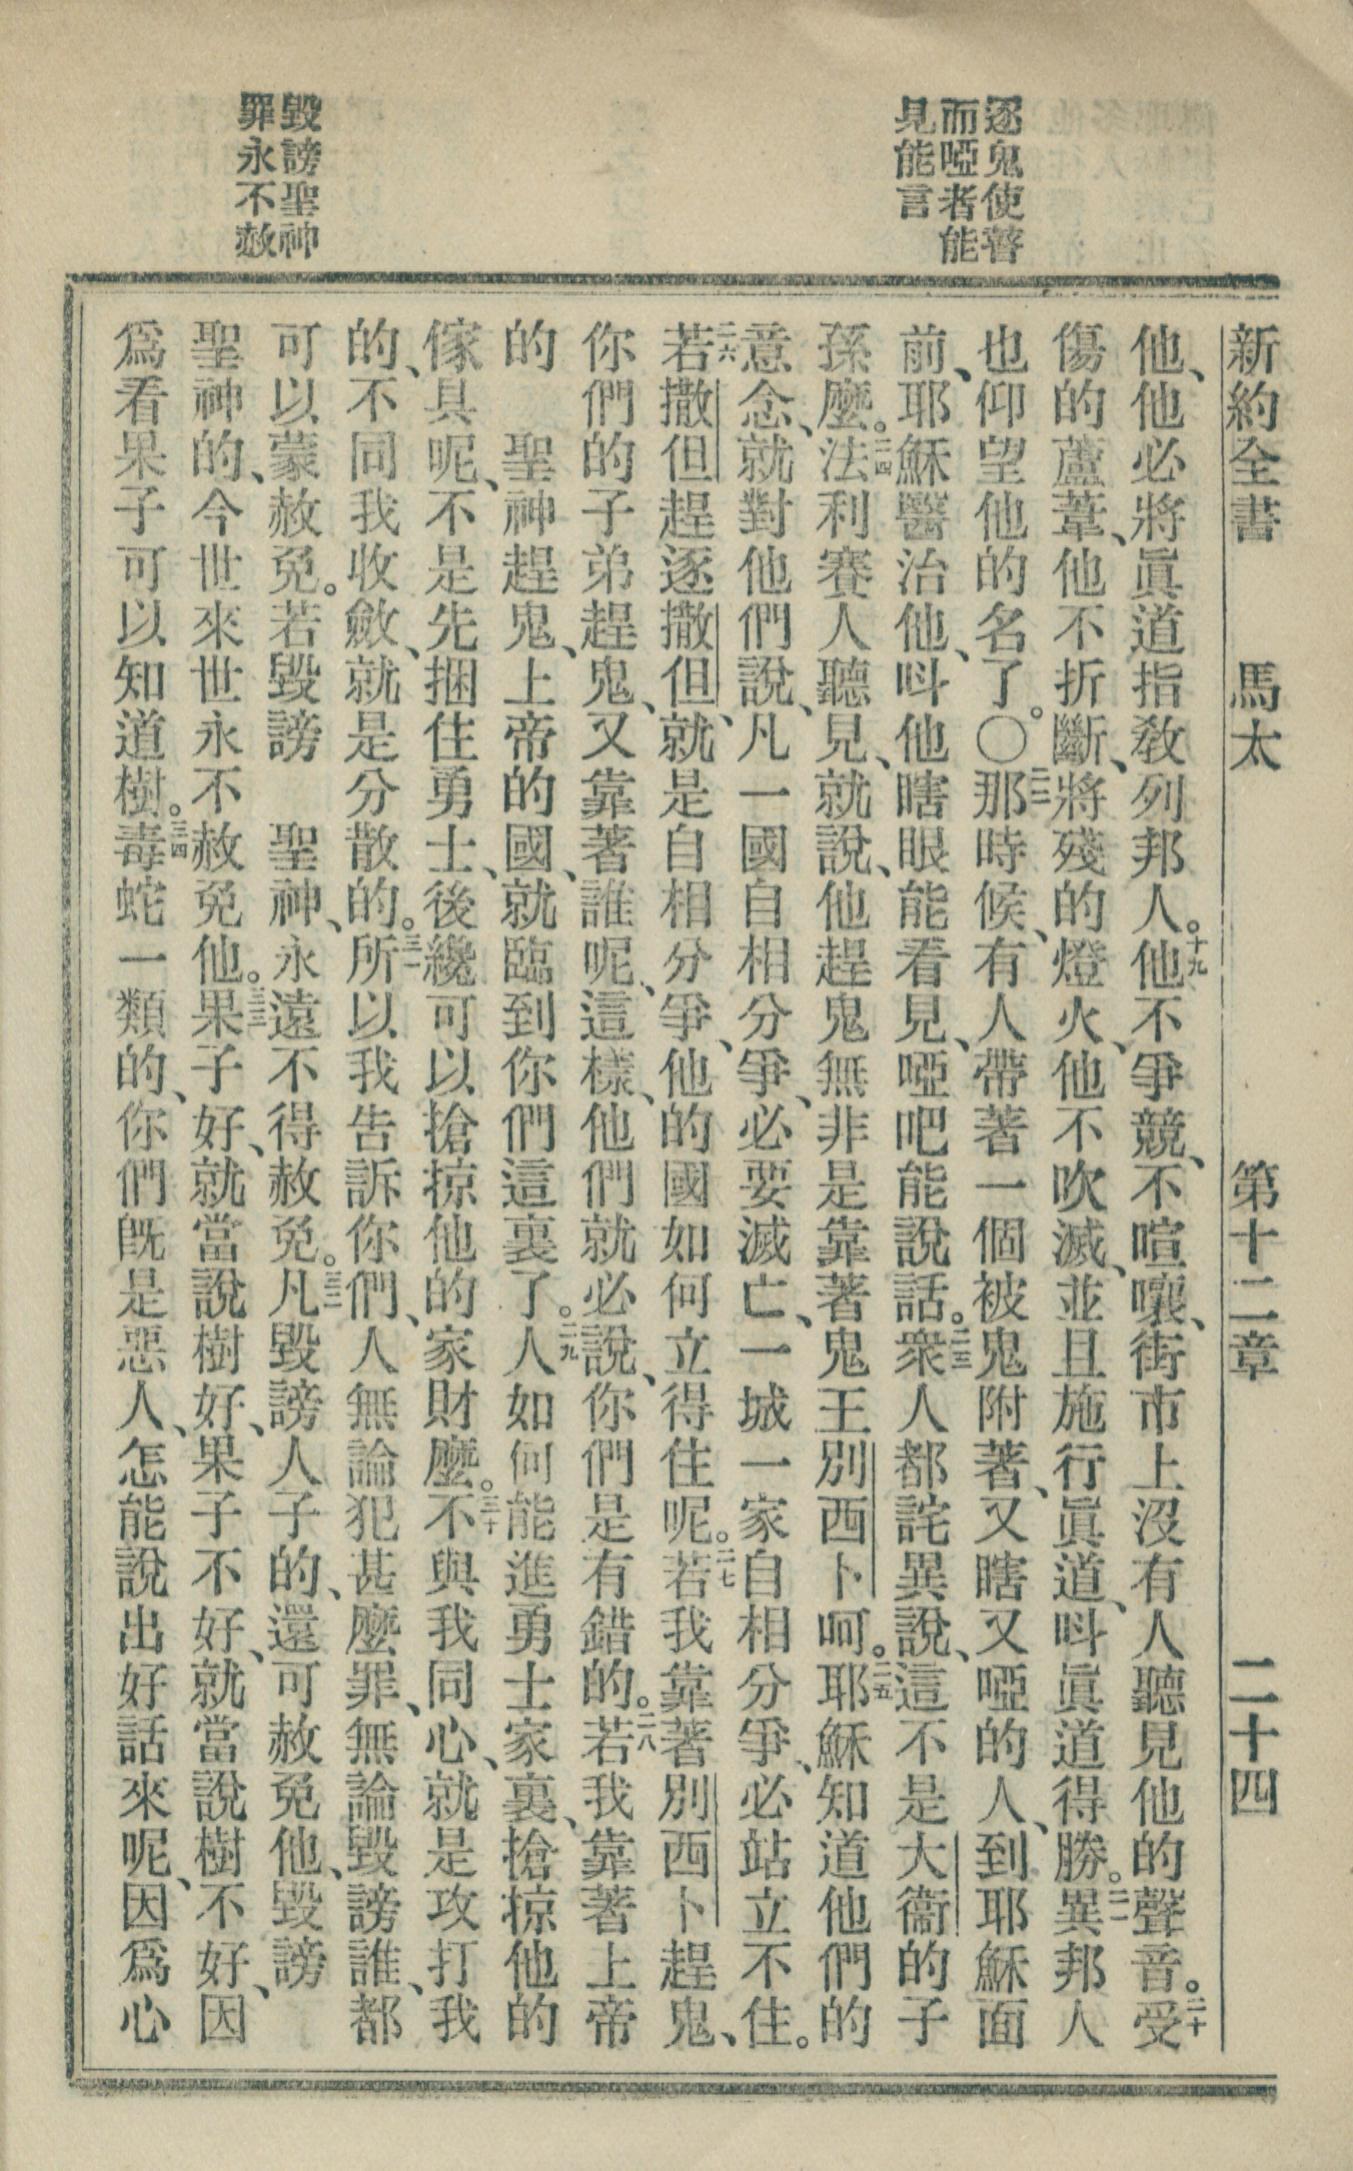 新約全書　馬太　第十二章　二十四
逐鬼使瞽
而啞者能
見能言
毀謗聖神
罪永不赦
他、他必將眞道指敎列邦人。十九他不爭競、不喧嚷、街市上沒有人聽見他的聲音。二十受
傷的蘆葦、他不折斷、將殘的燈火、他不吹滅、並且施行眞道、呌眞道得勝。二一異邦人
也仰望他的名了。〇二二那時候、有人帶著一個被鬼附著、又瞎又啞的人、到耶穌面
前、耶穌醫治他、呌他瞎眼能看見、啞吧能說話。二三衆人都詫異說、這不是大衞的子
孫麼。二四法利賽人聽見、就說、他趕鬼無非是靠著鬼王別西卜呵。二五耶穌知道他們的
意念、就對他們說、凡一國自相分爭、必要滅亡、一城一家自相分爭、必站立不住。
二六若撒但趕逐撒但、就是自相分爭、他的國如何立得住呢。二七若我靠著別西卜趕鬼、
你們的子弟趕鬼、又靠著誰呢、這樣、他們就必說、你們是有錯的。二八若我靠著上帝
的　聖神趕鬼、上帝的國、就臨到你們這裏了。二九人如何能進勇士家裏、搶掠他的
傢具呢、不是先捆住勇士、後纔可以搶掠他的家財麼。三十不與我同心、就是攻打我
的、不同我收斂、就是分散的。三一所以我告訴你們、人無論犯甚麼罪、無論毀謗誰、都
可以蒙赦免。若毀謗　聖神、永遠不得赦免。三二凡毀謗人子的、還可赦免他、毀謗
聖神的、今世來世永不赦免他。三三果子好、就當說樹好、果子不好、就當說樹不好、因
爲看果子可以知道樹。三四毒蛇一類的、你們旣是惡人、怎能說出好話來呢、因爲心